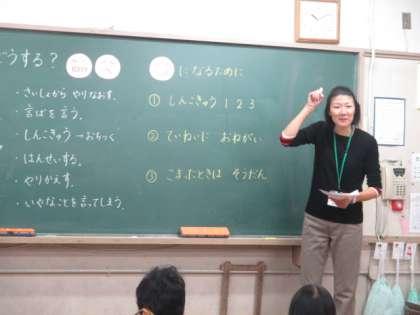 どうする？
になるために
・さいしょから やりなおす。
・言ばを言う。
・しんこきゅう→おちつく
・はんせいする。
・やりかえす。
・いやなことを言ってしまう。
① しんこきゅう 1 2 3
② ていねいに おねがい
③ こまったときは そうだん